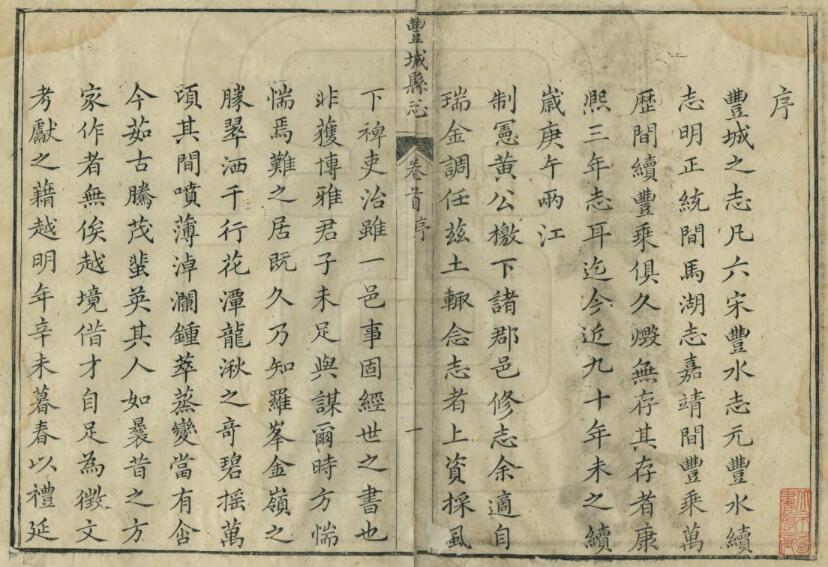 序
豐城之志凡六宋豐水志元豐水續
志明正統間馬湖志嘉靖間豐乘萬
歷間續豐乘俱久燬無存其存者康
熙三年志耳迄今近九十年未之續
歲庚午兩江
制憲黃公檄下諸郡邑修志余適自
瑞金調任茲土輙念志者上資採風
豐城縣志
卷首序
一
下裨吏治雖一邑事固經世之書也
非獲博雅君子未足與謀爾時方惴
惴焉難之居旣久乃知羅峯金嶺之
勝翠洒千行花潭龍湫之奇碧摇萬
頃其間噴薄淖瀾鍾萃蒸變當有含
今茹古騰茂蜚英其人如曩昔之方
家作者無俟越境借才自足為徵文
考獻之藉越明年辛未暮春以禮延